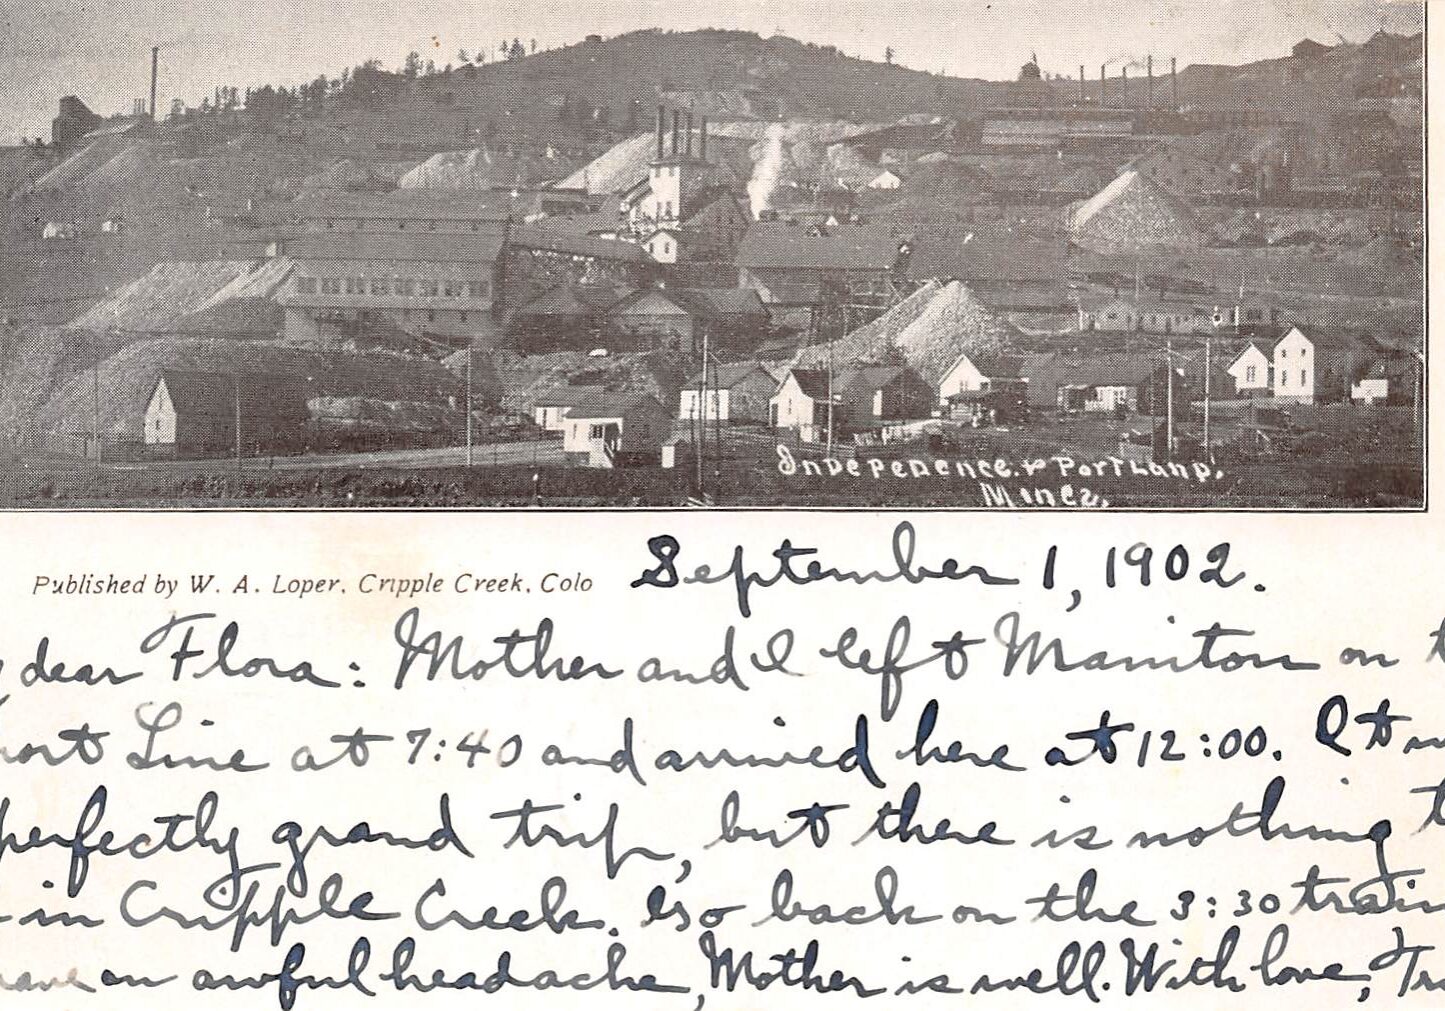 Independence. & Portland.
Mines.
Published by W. A. Loper, Cripple Creek, Colo
September 1, 1902.
dear Flora: Mother and I left Maniton on t
ort Line at 7:40 and arrived here at 12:00. It w
perfectly grand trip, but there is nothing t
in Cripple Creek. Go back on the 3:30 train
ave an awful headache, Mother is well. With love, Tr